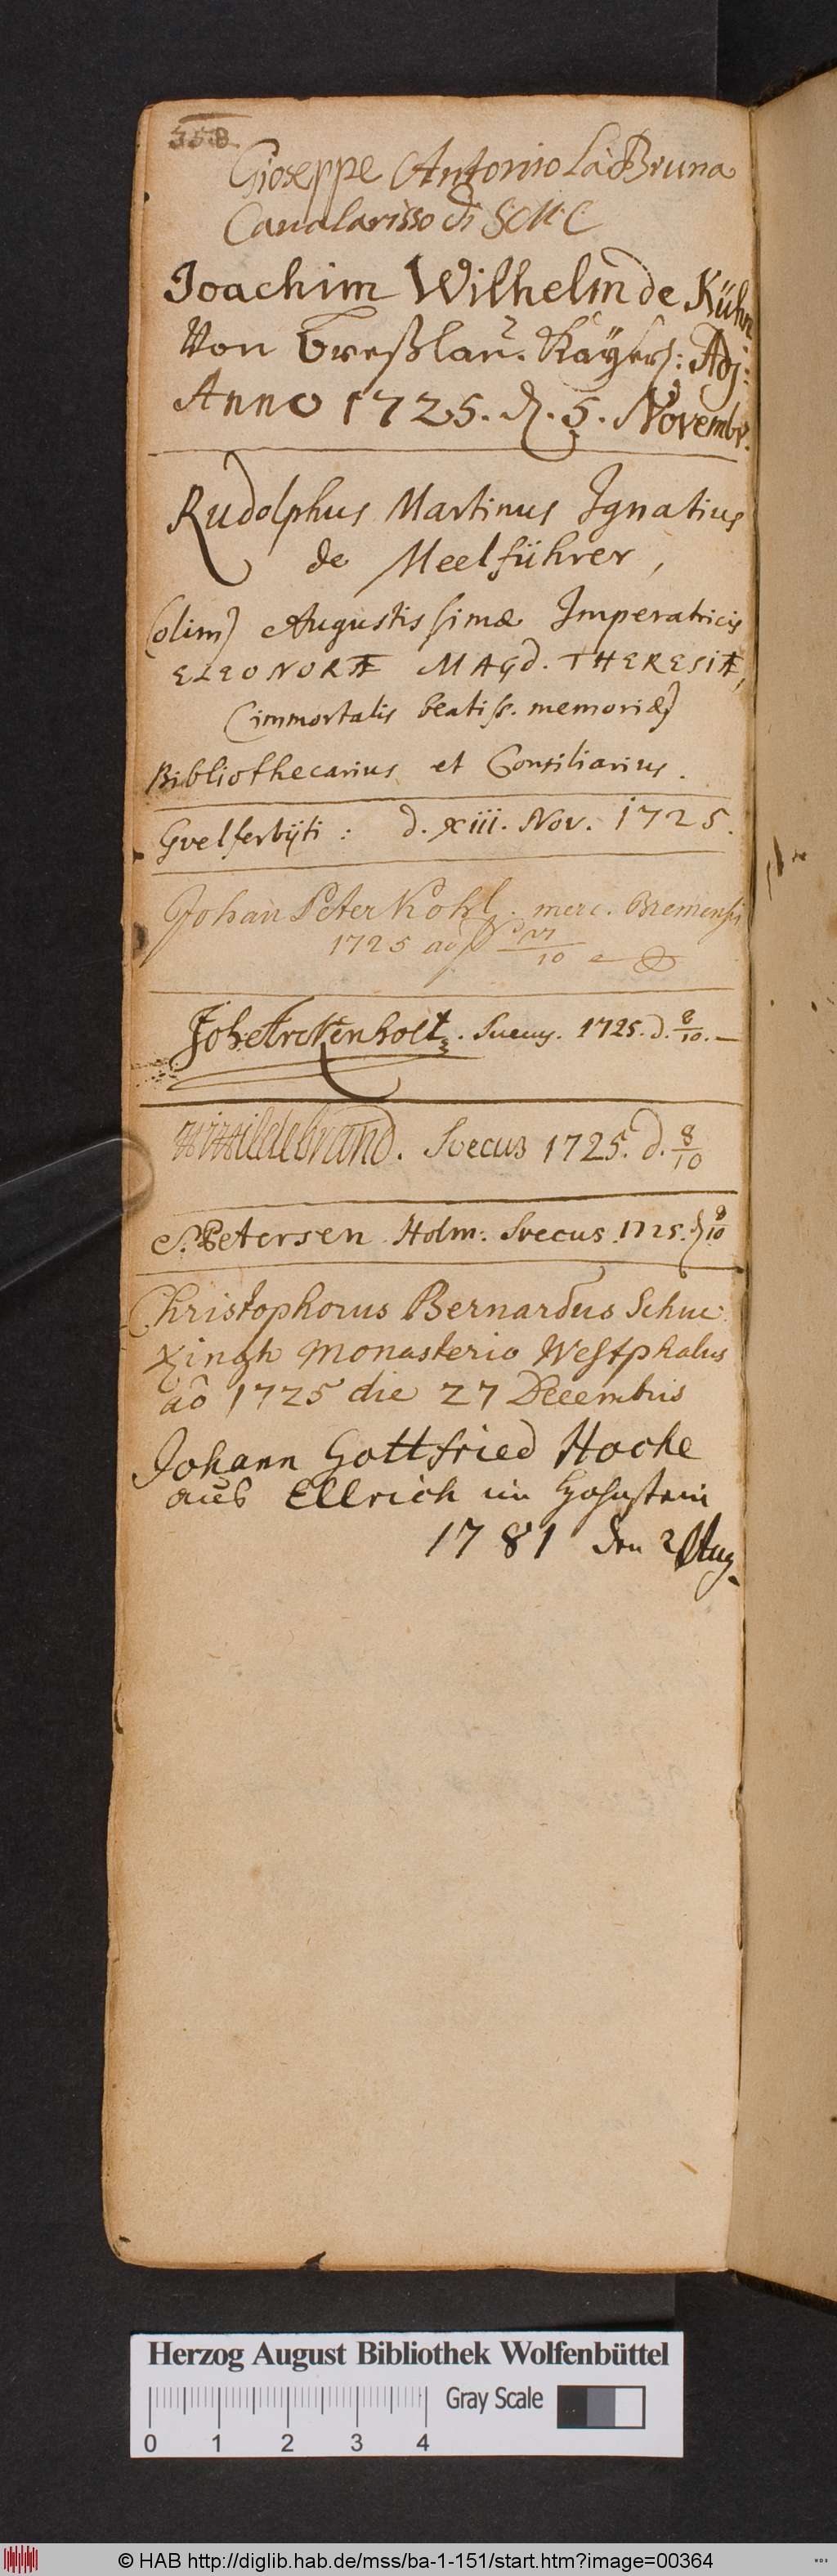 358.
Gioseppe Antonio La Bruna
Caualarisso di S M C
Joachim Wilhelm de Kühn
Von Breßlau. Kaÿers: Adj:
Anno 1725. d. 5. Novembr.
Rudolphus Martinus Ignatius
de Meelführer,
(olim) Augustissimæ Imperatricis
ELEONORÆ MAGd. THERESIÆ,
(immortalis beatiss. memoriæ)
Bibliothecarius et Consiliarius.
Guelferbÿti: d. xiii. Nov. 1725.
Johan Peter Kohl. merc. Bremensis
1725
Joh: Arckenholtz. Suecus. 1725. d. 8/10.
Hildebrand. Svecus 1725. d. 8/10
Petersen Holm: Svecus. 1725. d 8/10
Christophorus Bernardus Schuc
kingh Monasterio Westphalus
aõ 1725 die 27 Decembris
Johann Gottfried Hoche
aus Ellrich im Hohnstein
1781 den 2 Aug.
Herzog August Bibliothek Wolfenbüttel
Gray Scale
0 1 2 3 4
© HAB http://diglib.hab.de/mss/ba-1-151/start.htm?image=00364